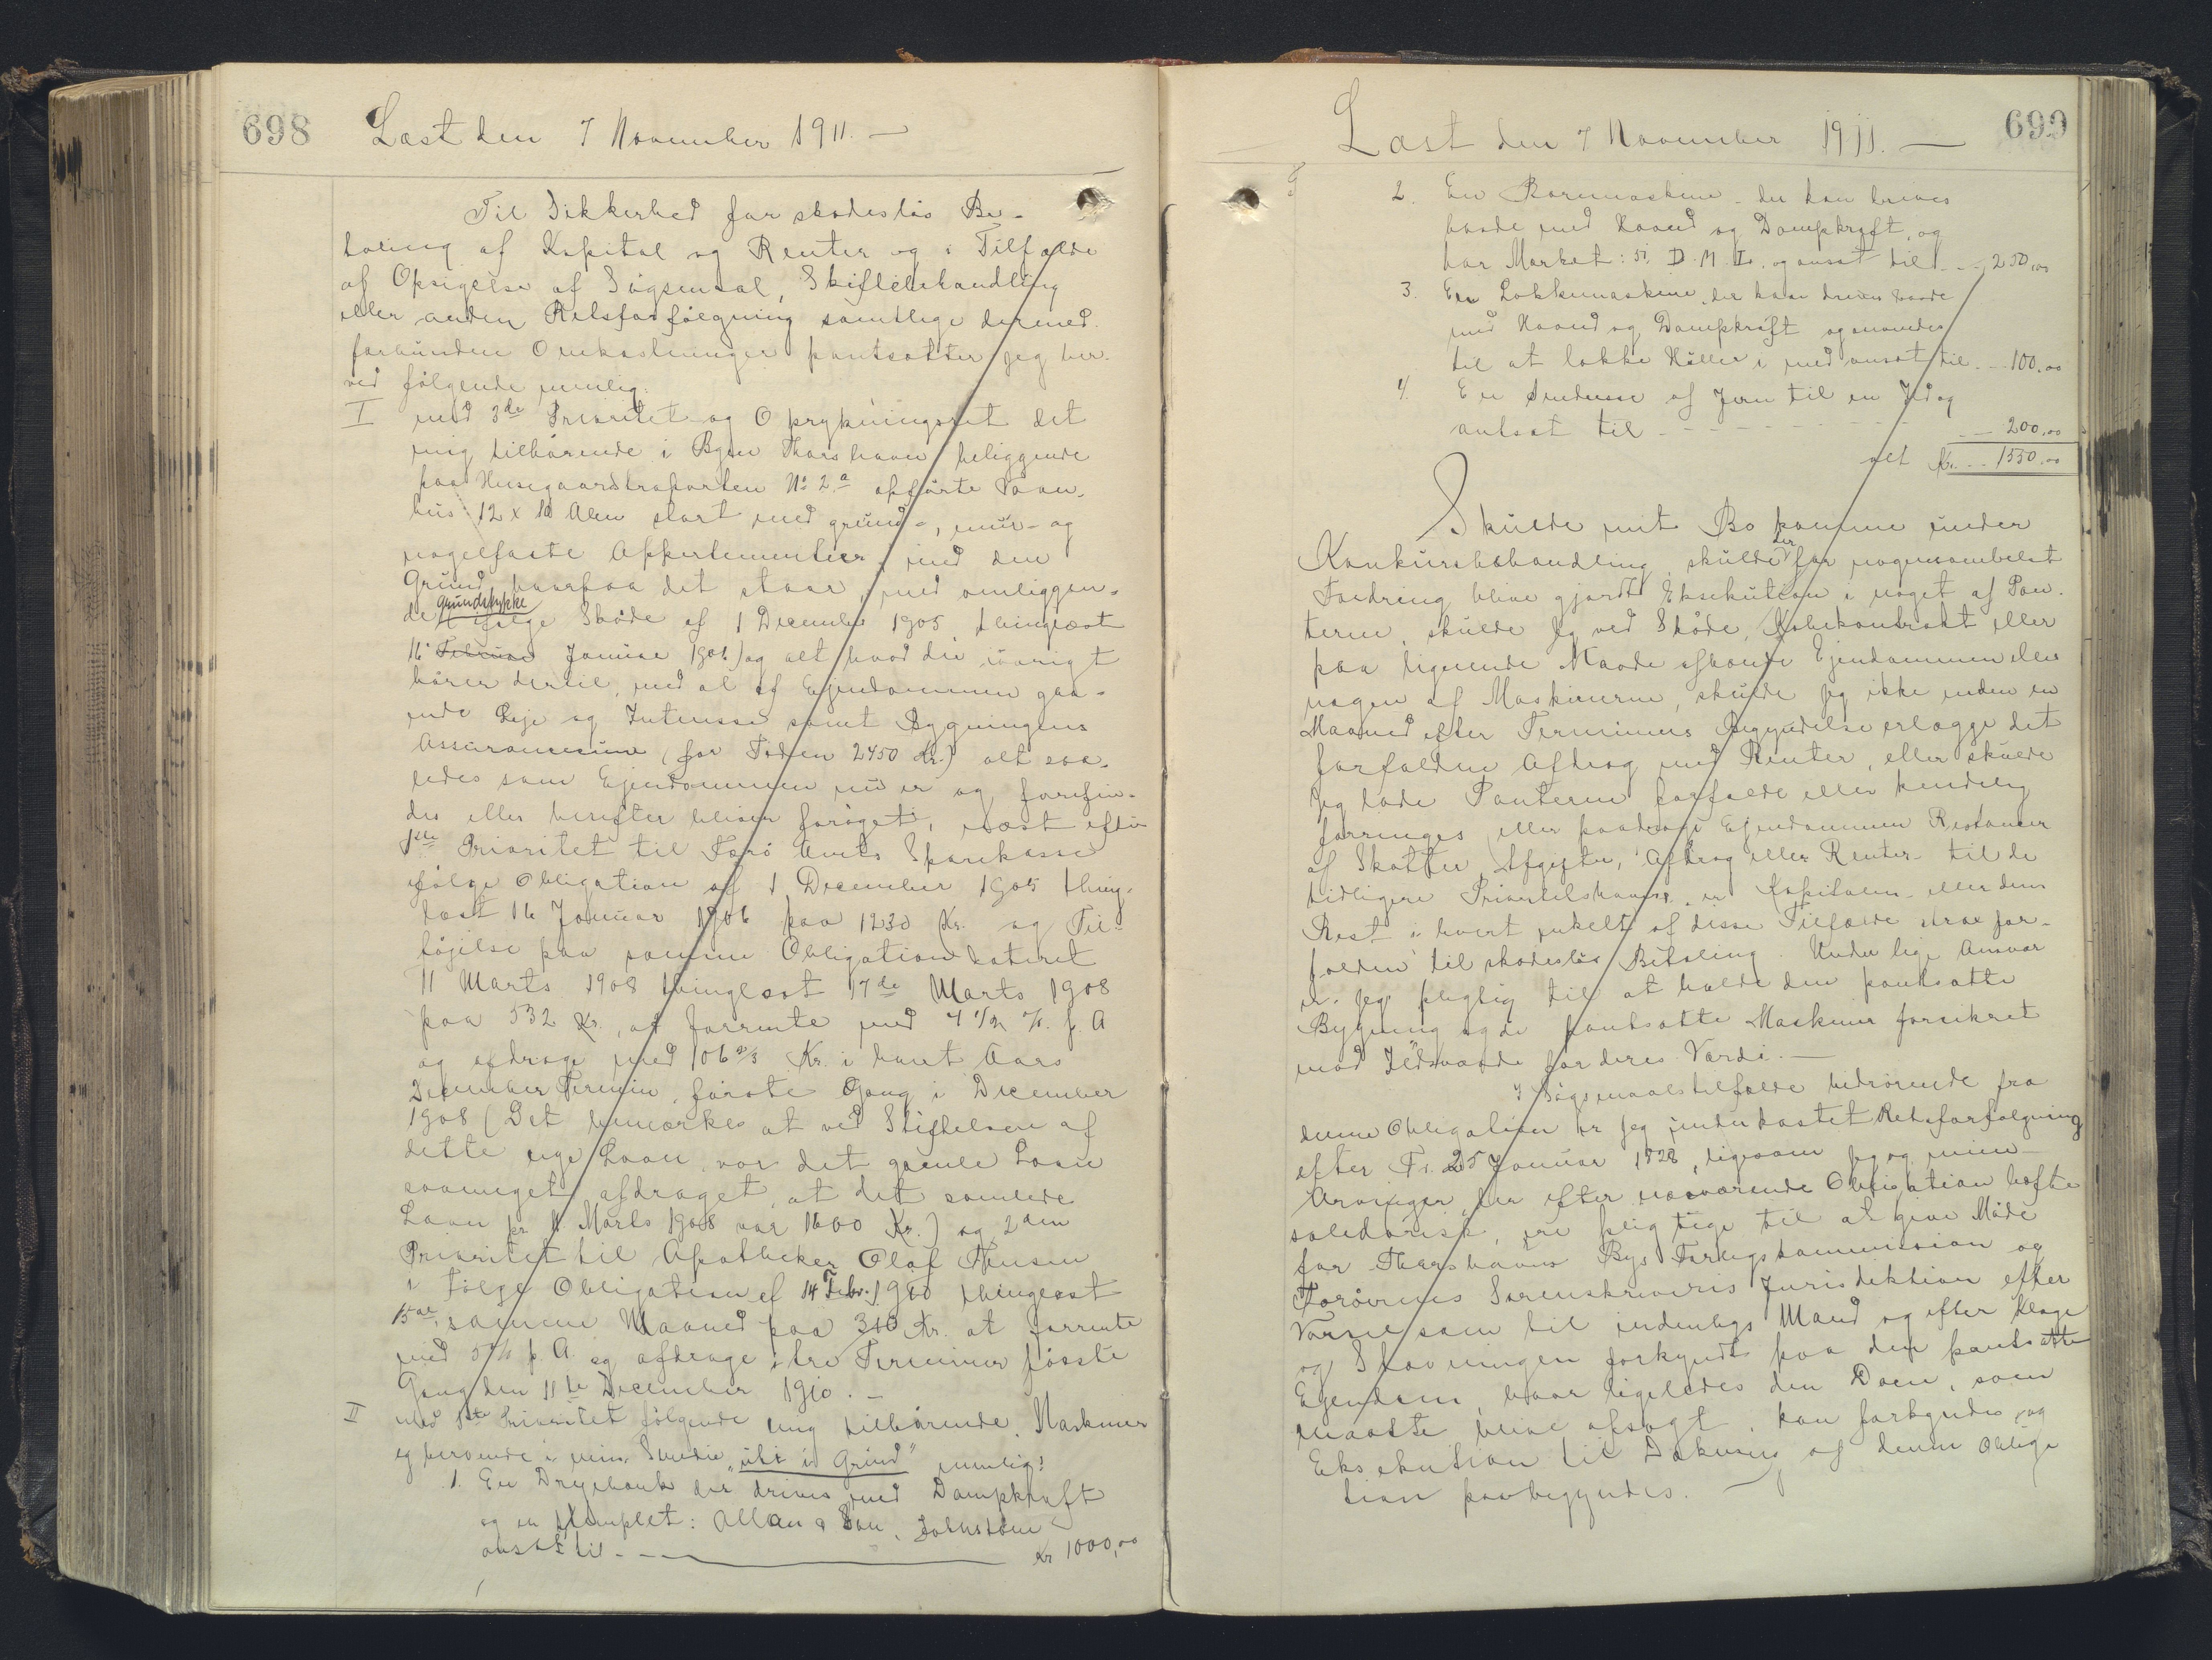 698 Læst den 7 November 1911. —
Til Sikkerhed for skadesløs Be-
taling af Kapital og Renter og i Tilfælde
af Opsigelse af Søgsmaal, Skiftebehandling
eller anden Retsforfølgning samtlige dermed
forbundne Omkostninger pantsætter jeg her-
ved følgende nemlig:
I med 3die Prioritet og Oprykningsret det
mig tilhørende i Byen Thorshavn beliggende
paa Husegaardstraparten No 2a opførte Vaan-
hus 12 x 10 Alen stort med grund-, mur- og
nagelfaste Appertinentier, med den
Grund, hvorpaa det staar, med omliggen-
de grundstykke ifølge Skøde af 1 December 1905, thinglæst
16 Februar Januar 1906) og alt hvad der iøvrigt
hører dertil, med al af Ejendommen gaa-
ende Leje og Interesse samt Bygningens
Assurancesum (for Tiden 2450 Kr.) alt saa-
ledes som Ejendommen nu er og forefin-
des eller herefter bliver forøget, næst efter
1ste Prioritet til Færø Amts Sparekasse
ifølge Obligation af 1 December 1905 thing-
læst 16 Januar 1906 paa 1230 Kr. og Til-
føjelse paa samme Obligation dateret
11 Marts 1908 thinglæst 17de Marts 1908
paa 532 Kr., at forrente med 4 1/2 % p. A
og afdrage med 106 2/3 Kr. i hvert Aars
December Termin, første Gang i December
1908 (Det bemærkes at ved Stiftelsen af
dette nye Laan, var det gamle Laan
saameget afdraget, at det samlede
Laan pr. 11 Marts 1908 var 1600 Kr.) og 2den
Prioritet til Apotheker Olaf Hansen
i Følge Obligation af 14 Febr. 1910 thinglæst
15de samme Maaned paa 310 Kr. at forrente
med 5 % p. A. og afdrage i tre Terminer første
Gang den 11te December 1910. —
II med 1ste Prioritet følgende mig tilhørende Maskiner
og beroende i min Smedie "uti i Grund" nemlig:
1. En Drejebænk der drives med Dampkraft
og er stemplet: Allan a Son, Johnstone
ansat til - - Kr 1000,00
Læst den 7 November 1911. — 699
2. En Boremaskine - der kan drives
baade med Haand og Dampkraft, og
har Mærket: D. M. I. og ansat til - - 250,00
3. En Lokkemaskine, der kan drives baade
med Haand og Dampkraft og anvendes
til at lokke Huller i med ansat til - - 100,00
4. En Smedesse af Jern til en Ild og
antsat til - - - - - - - - 200,00
alt Kr. - - 1550,00
Skulde mit Bo komme under
Konkursbehandling, skulde der for nogensomhelst
Fordring blive gjordt Eksekution i noget af Pan-
terne, skulde jeg ved Skøde, Købekontrakt eller
paa lignende Maade afhænde Ejendommen eller
nogen af Maskinerne, skulde jeg ikke inden en
Maaned efter Terminens Begyndelse erlægge det
forfaldne Afdrag med Renter, eller skulde
jeg lade Panterne forfalde eller kendelig
forringes, eller paadrage Ejendommen Restancer
af Skatter, Afgifter, Afdrag eller Renter til de
tidligere Prioritetshavere, er Kapitalen eller dens
Rest i hvert enkelt af disse Tilfælde strax for-
falden til skadesløs Betaling. Under lige Ansvar
er jeg pligtig til at holde den pantsatte
Bygning og de pantsatte Maskiner forsikret
mod Ildsvaade for deres Værdi. —
I Søgsmaalstilfælde hidrørende fra
denne Obligation er jeg underkastet Retsforfølgning
efter Fr. 25 Januar 1828, ligesom jeg og mine
Arvinger, der efter nærværende Obligation hæfte
solidarisk, ere pligtige til at give Møde
for Thorshavns Bys Forligskommission og
Færøernes Sorenskriveris Jurisdiktion efter
Varsel som til indenbys Mand og efter Klage
og Stævningen forkyndt paa den pantsatte
Ejendom, hvor ligeledes den Dom, som
maatte blive afsagt, kan forkyndes, og
Eksekution til Dækning af denne Obliga
tion paabegyndes. —